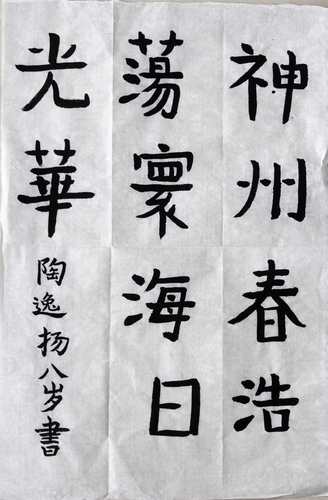 神州春浩
蕩寰海日
光華
陶逸扬八岁書